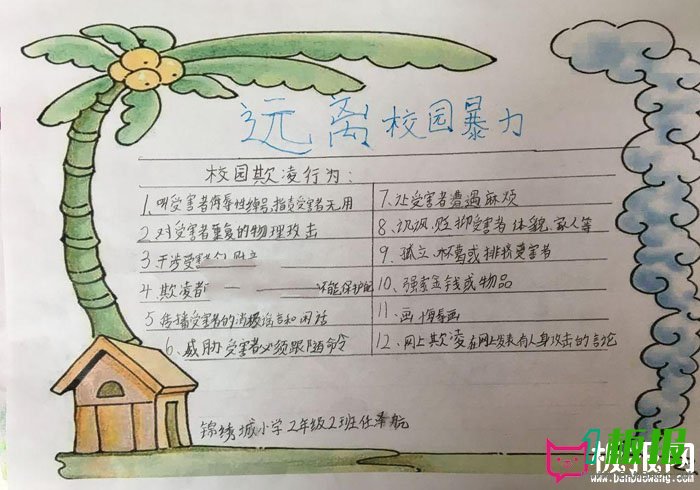 远离校园暴力
校园欺凌行为：
1、叫受害者侮辱性绰号,指责受害者无用
2、对受害者重复的物理攻击
3、干涉受害
4、欺凌者
不能保护
5、传播受害者的消极谣言和闲话
6、威胁受害者必须跟随命令
7、让受害者遭遇麻烦
8、讥讽、贬抑受害者体貌、家人等
9、孤立、杯葛或排挤受害者
10、强索金钱或物品
11、画侮辱画
12、网上欺凌在网上发表有人身攻击的言论
锦绣城小学2年级2班任泽航
1板报
板报网
www.banbaowang.com